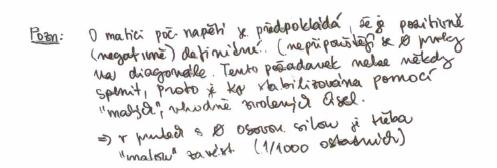 Pozn: O matici poč. napětí se předpokládá, že je pozitivně
(negativně) definitní. (nepřipouštějí se 0 prvky
na diagonále. Tento požadavek nelze někdy
splnit, proto je ke stabilizována pomocí
"malých", vhodně zvolených čísel.
⇒ v prutech s 0 osovou silou je třeba
"malou" zavést. (1/1000 ostatních)